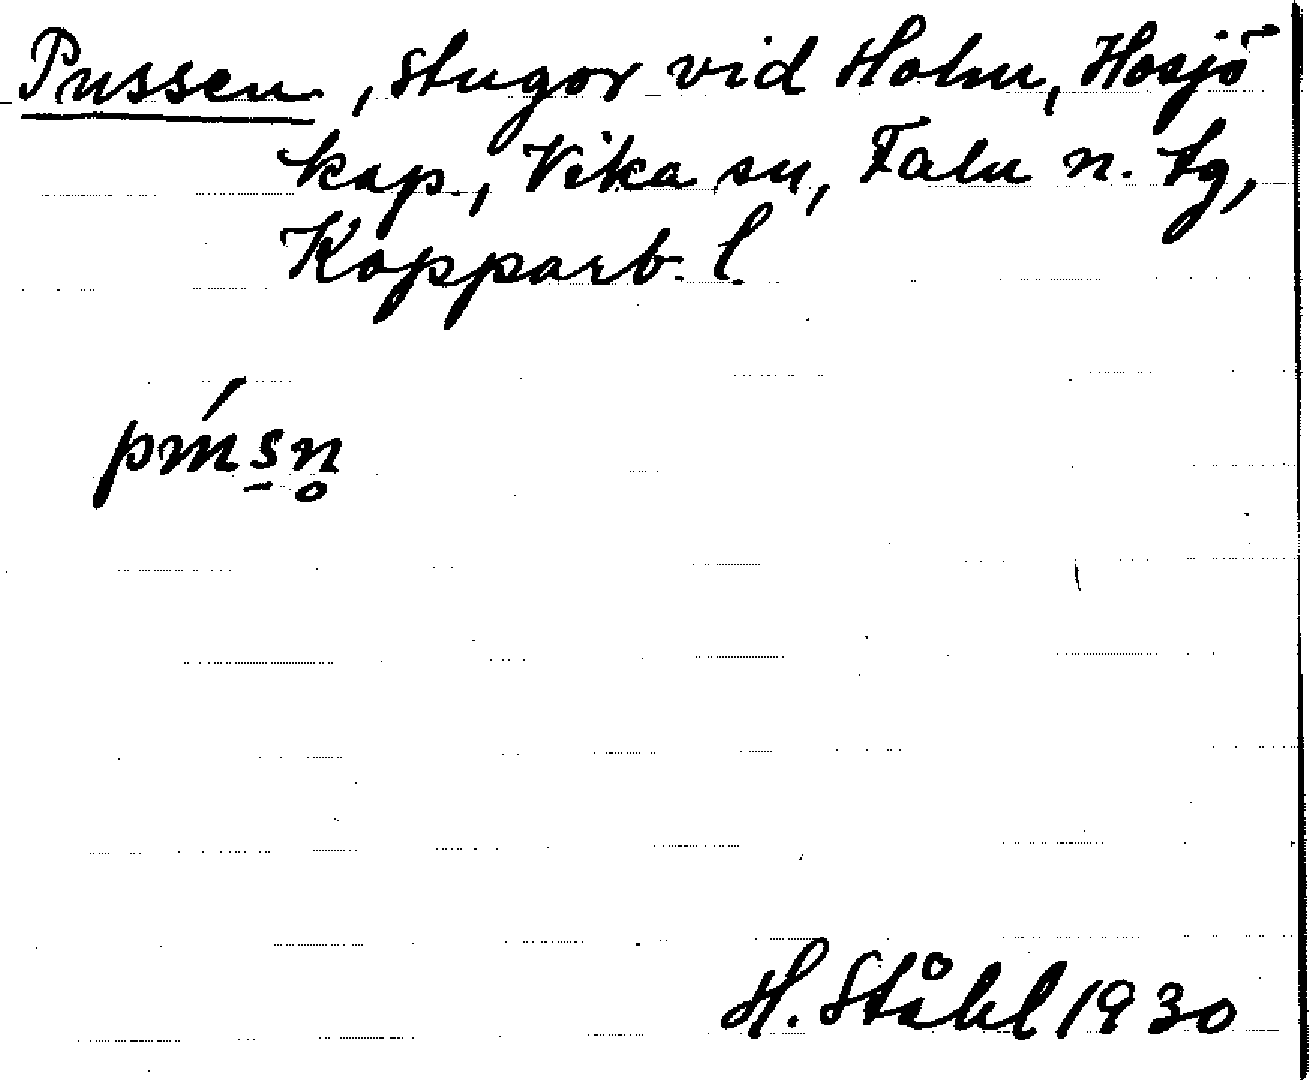 Pussen, stugor vid Holm, Hosjö
kap., Vika sn, Falu n. tg,
Kopparb. l.
H. Ståhl 1930